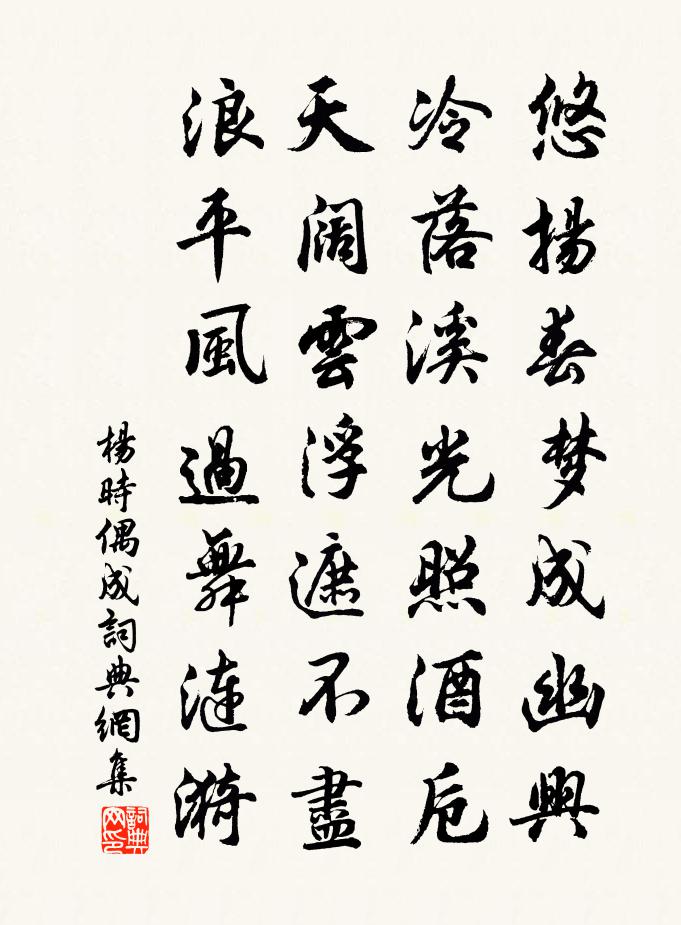 悠揚春梦成幽興
冷落溪光照酒卮
天闊雲浮遮不盡
浪平風過舞漣漪
楊時偶成詞典網集
詞典網印